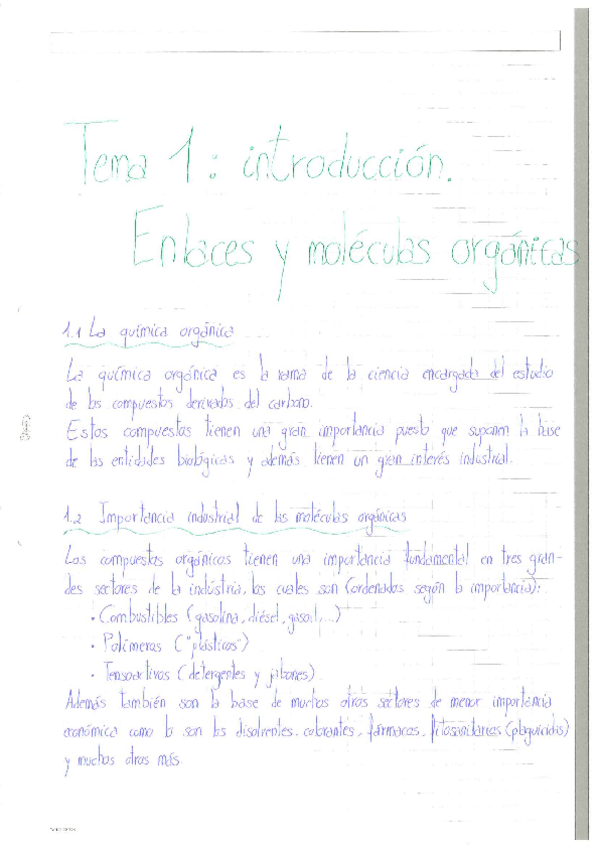 Tema 1: introducción.
Enlaces y moléculas orgánicas
1.1 La química orgánica
La química orgánica es la rama de la ciencia encargada del estudio
de los compuestos derivados del carbono.
Estos compuestos tienen una gran importancia puesto que suponen la base
de las entidades biológicas y además tienen un gran interés industrial.
1.2 Importancia industrial de las moléculas orgánicas
Los compuestos orgánicos tienen una importancia fundamental en tres gran-
des sectores de la indústria, los cuales son (ordenados según la importancia):
· Combustibles (gasolina, diésel, gasoil, ...)
· Polímeros ("plásticos")
· Tensoactivos (detergentes y jabones)
Además también son la base de muchos otros sectores de menor importáncia
económica como lo son los disolventes, colorantes, fármacos, fitosanitarios (plaguicidas)
y muchos otros más.